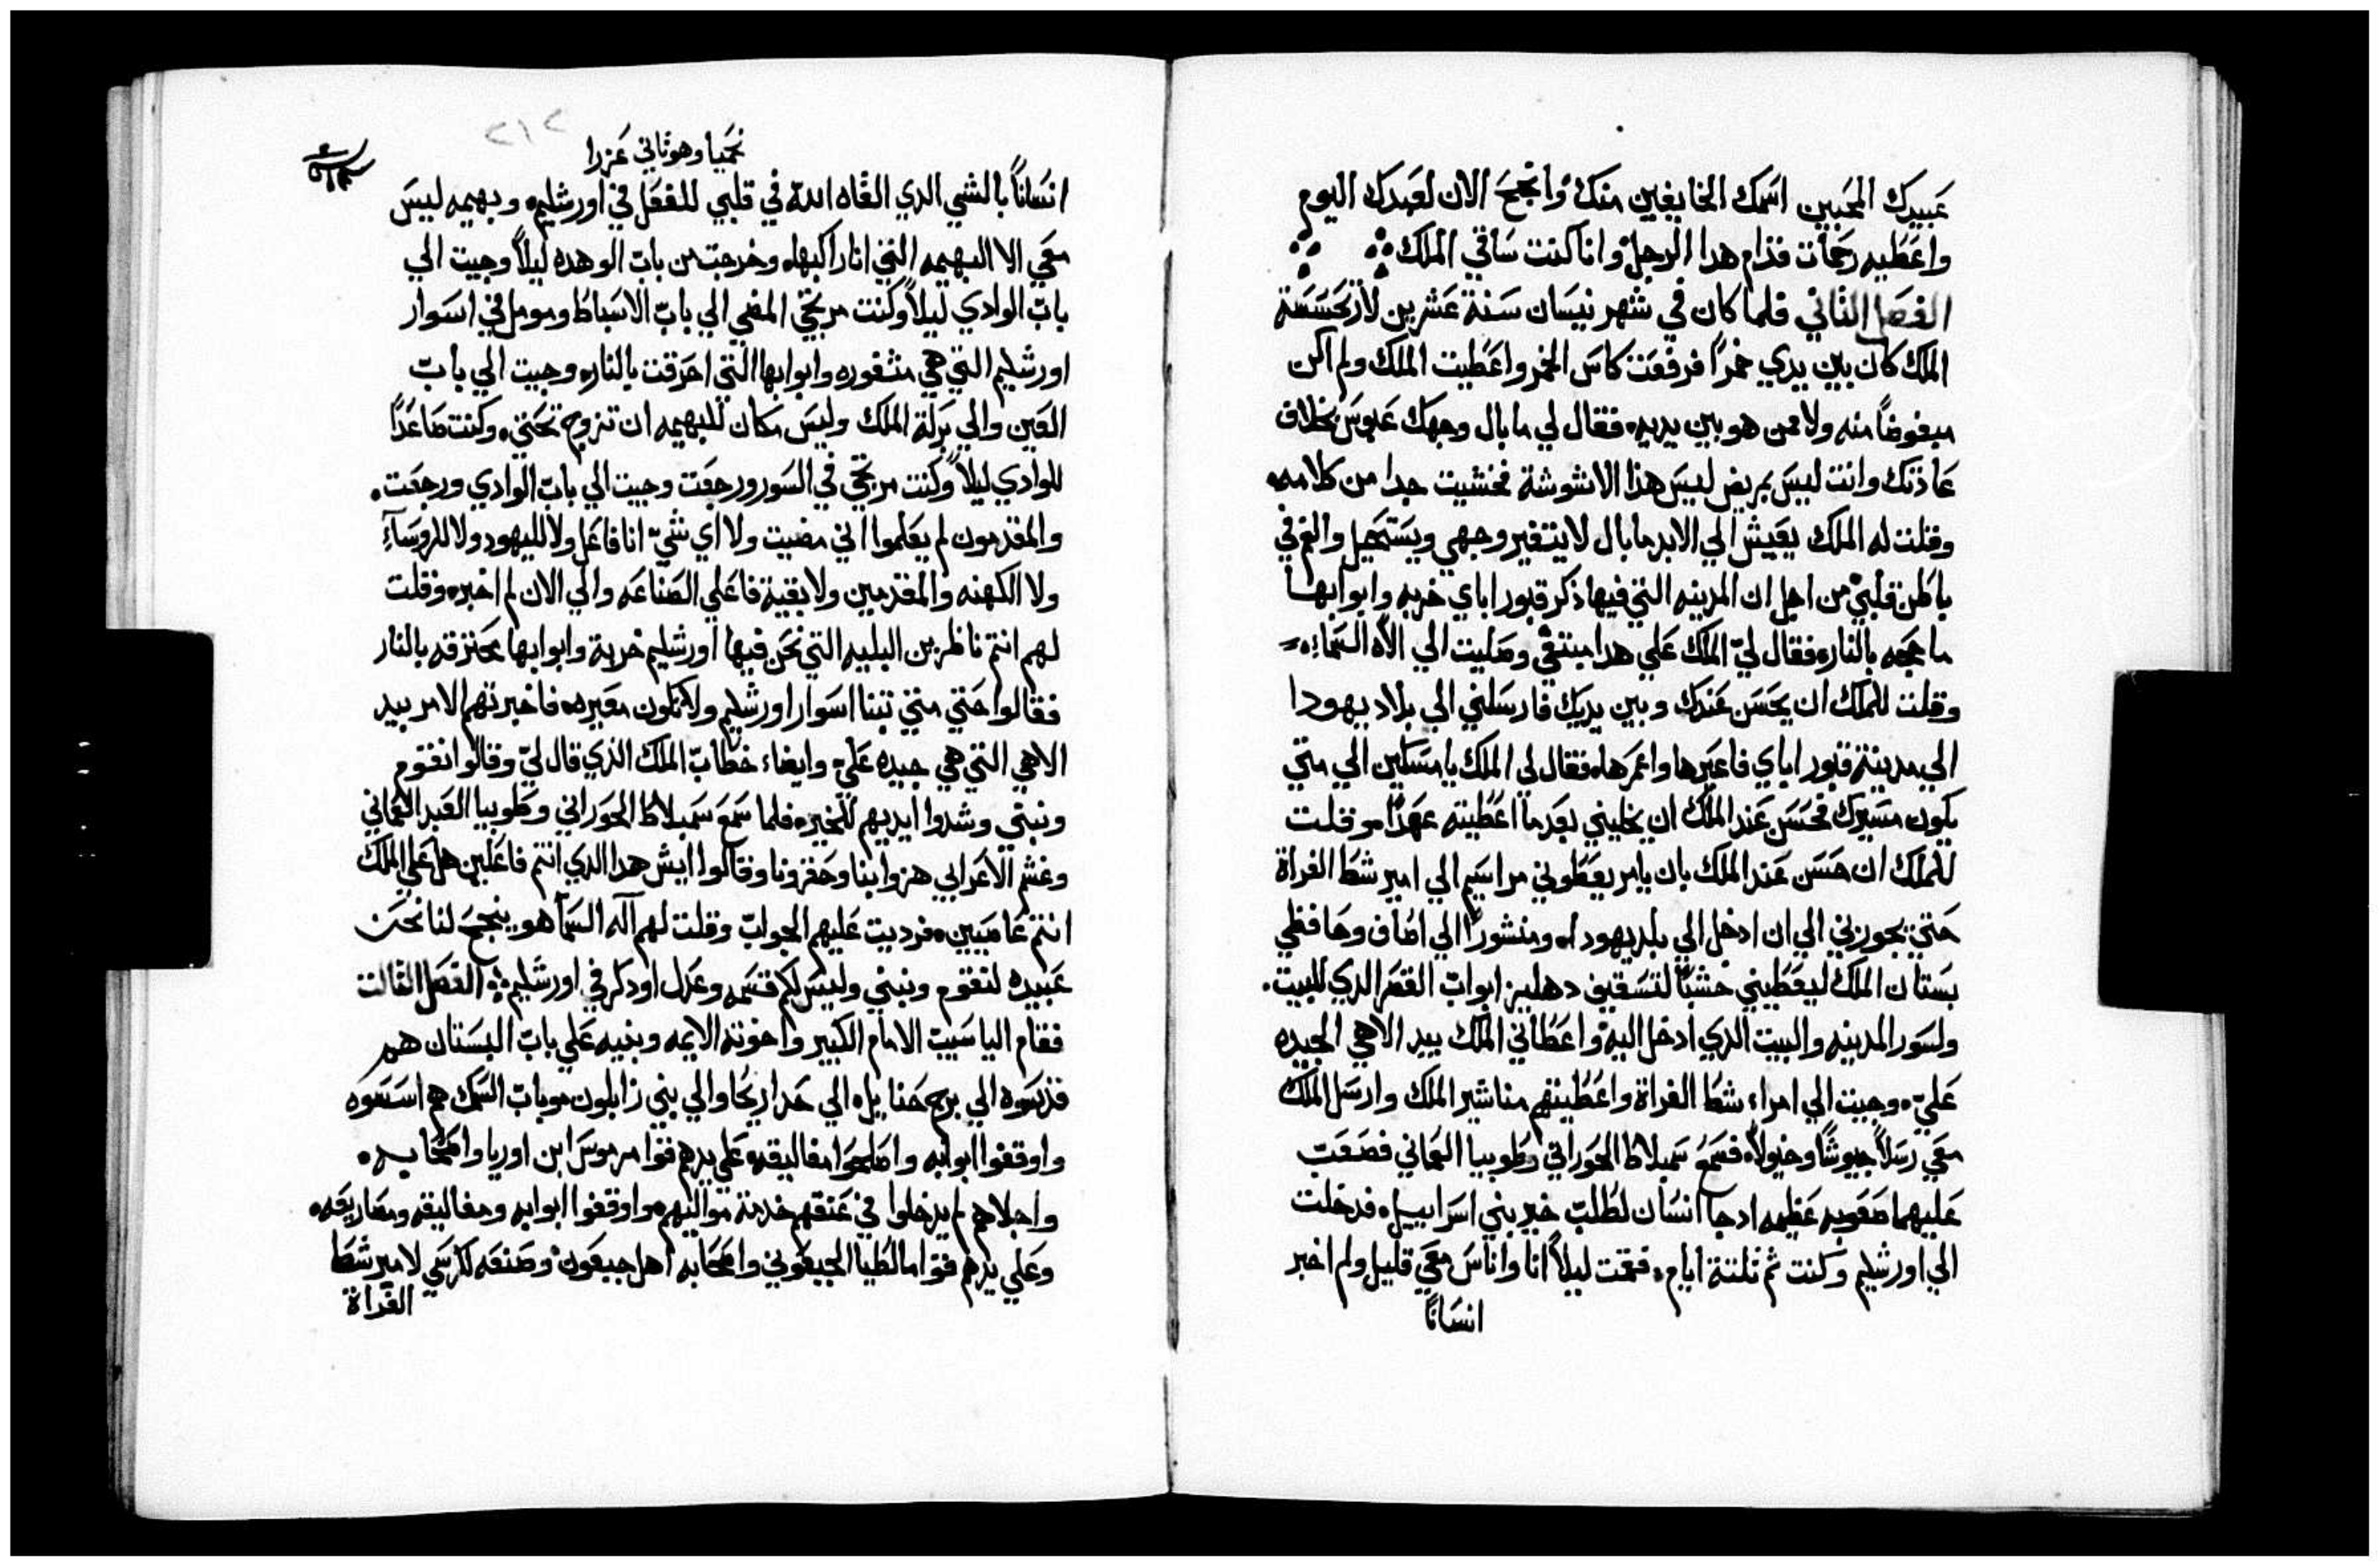 عبيدك المحبين اسمك الخايفين منك وانجح الان لعبدك اليوم
واعطيه رحمات قدام هدا الرجل وانا كنت ساقي الملك
الفصل التاني فلما كان في شهر نيسان سنة عشرين لارتحسسة
الملك كان بين يدي خمراً فرفعت كاس الخمر واعطيت الملك ولم اكن
مبغوضاً منه ولا ممن هو بين يديه فقال لي ما بال وجهك عبوس بخلاف
عادتك وانت ليس بمريض ليس هذا الا تشوشة فخشيت جدا من كلامه
وقلت له الملك يعيش الي الابد ما بال لا يتغير وجهي ويستحيل والغم في
باطن قلبي من اجل ان المدينه التي فيها ذكر قبور اباي خربه وابوابها
ما هجه بالنار فقال لي الملك علي هدا مبتغي وصليت الي الاه السماء
وقلت للملك ان يحسن عندك وبين يديك فارسلني الي بلاد يهودا
الي مدينة قبور اباي فاعبرها واعمرها فقال لي الملك يا مسكين الي متي
يكون مسيرك فحسن عند الملك ان يخليني بعد ما اعطيته عهداً وقلت
للملك ان حسن عند الملك بان يامر يعطوني مراسيم الي امير شط الفراة
حتي يجوزني الي ان ادخل الي بلد يهودا ومنشوراً الي اصاف وحافظي
بستان الملك ليعطيني خشباً لتسقيف دهليز ابواب القصر الدي للبيت
ولسور المدينه والبيت الدي ادخل اليه واعطاني الملك بيد الاهي الجيده
علي وجيت الي امراء شط الفراة واعطيتهم مناشير الملك وارسل الملك
معي رسلاً جيوشاً وخيولاً فسمع سمبلاط الحوراني وطوبيا العماني فصعب
عليهما صعوبه عظيمه اد جا انسان لطلب خير بني اسراييل فدخلت
الي اورشليم وكنت ثم تلتة ايام فقمت ليلاً انا واناس معي قليل ولم اخبر
انساناً
٢١٢
نحميا وهو تاني عزرا
انساناً بالشي الدي القاه الله في قلبي للفعل في اورشليم وبهيمه ليس
معي الا البهيمه التي انا راكبها وخرجت من باب الوهده ليلاً وجيت الي
باب الوادي ليلاً وكنت مرتجي المضي الي باب الاسباط ومومل في اسوار
اورشليم التي هي مثغوره وابوابها التي احرقت بالنار وجيت الي باب
العين والي بركة الملك وليس مكان للبهيمه ان تزوج تحتي وكنت صاعداً
للوادي ليلاً وكنت مرتجي في السور ورجعت وجيت الي باب الوادي ورجعت
والمقدمون لم يعلموا اني مضيت ولا اي شي انا فاعل ولا لليهود ولا للروساء
ولا الكهنه والمقدمين ولا بقية فاعلي الصناعه والي الان لم اخبره وقلت
لهم انتم ناظرين البليه التي نحن فيها اورشليم خربة وابوابها محترقه بالنار
فقالوا حتي متي تبنا اسوار اورشليم ولا نكون معيره فاخبرتهم الامر بيد
الاهي التي هي جيده علي وايضاء خطاب الملك الذي قال لي وقالوا نقوم
ونبني وشدوا ايديهم للخيره فلما سمع سمبلاط الحوراني وطوبيا العبد العماني
وغشم الاعرابي هزوا بنا وحقرونا وقالوا ايش هدا الدي انتم فاعلين هل علي الملك
انتم عاصيين فرديت عليهم الجواب وقلت لهم اله السما هو ينجح لنا نحن
عبيده لنقوم ونبني وليس لكم قسمه وعدل او دكر في اورشليم الفصل التالت
فقام الياسيب الامام الكبير واخوته الايمه وبنيه علي باب البستان هم
قدسوه الي برج حناييل الي حد اريحا والي بني زابلون وباب السمك هم اسسوه
واوقفوا ابوابه واصلحوا مغاليقه علي يدهم قوا مرموس ابن اوريا واصحابه
واجلاهم لم يدخلوا في عنقهم خدمة مواليهم واوقفوا ابوابه ومغاليقه ومصاريعه
وعلي يدهم قوا مالطيا الجبعوني واصحابه اهل جبعون وصنعه لكرسي لامير شط
الفراة